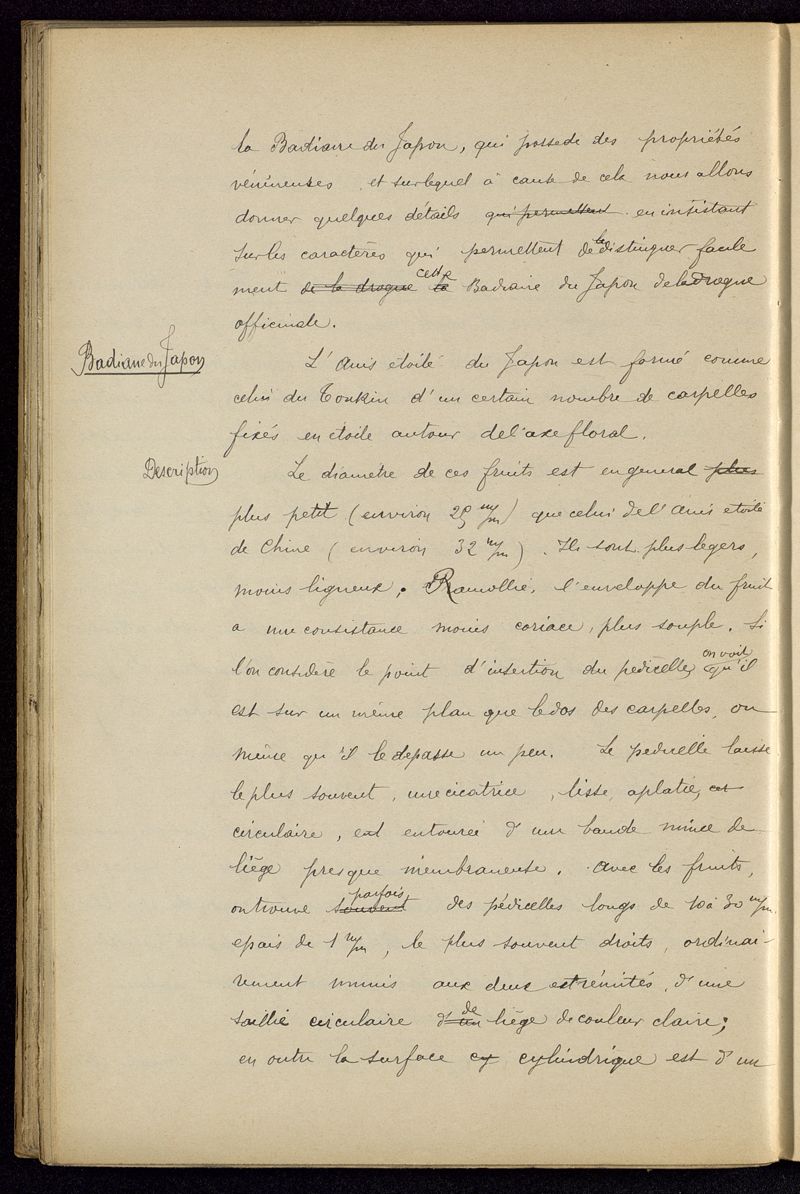 la Badiane du Japon, qui possède des propriétés
vénéneuses et sur lequel à cause de cela nous allons
donner quelques détails qui permettent en insistant
sur les caractères qui permettent de la distinguer facile
ment de la drogue la cette Badiane du Japon de la drogue
officinale.
Badiane du Japon
L'Anis étoilé du Japon est formé comme
celui du Tonkin d'un certain nombre de carpelles
fixés en étoile autour de l'axe floral.
Description
Le diamètre de ces fruits est en general plus
plus petit (environ 25 m/m) que celui de l'Anis étoilé
de Chine (environ 32 m/m). Ils sont plus légers,
moins ligneux. Ramollie, l'enveloppe du fruit
a une consistance moins coriace, plus souple. Si
l'on considère le point d'insertion du pedicelle, on voit qu'il
est sur un même plan que le dos des carpelles, ou
même qu'il le dépasse un peu. Le pedicelle laisse
le plus souvent, une cicatrice, lisse, aplatie, et
circulaire, est entourée d'une bande mince de
liège presque membraneuse. Avec les fruits,
on trouve souvent parfois des pédicelles longs de 10 à 30 m/m,
epais de 1 m/m, le plus souvent droits, ordinai-
rement munis aux deux extrémités, d'une
saillie circulaire d'un de liège de couleur claire;
en outre la surface cy cylindrique est d'un